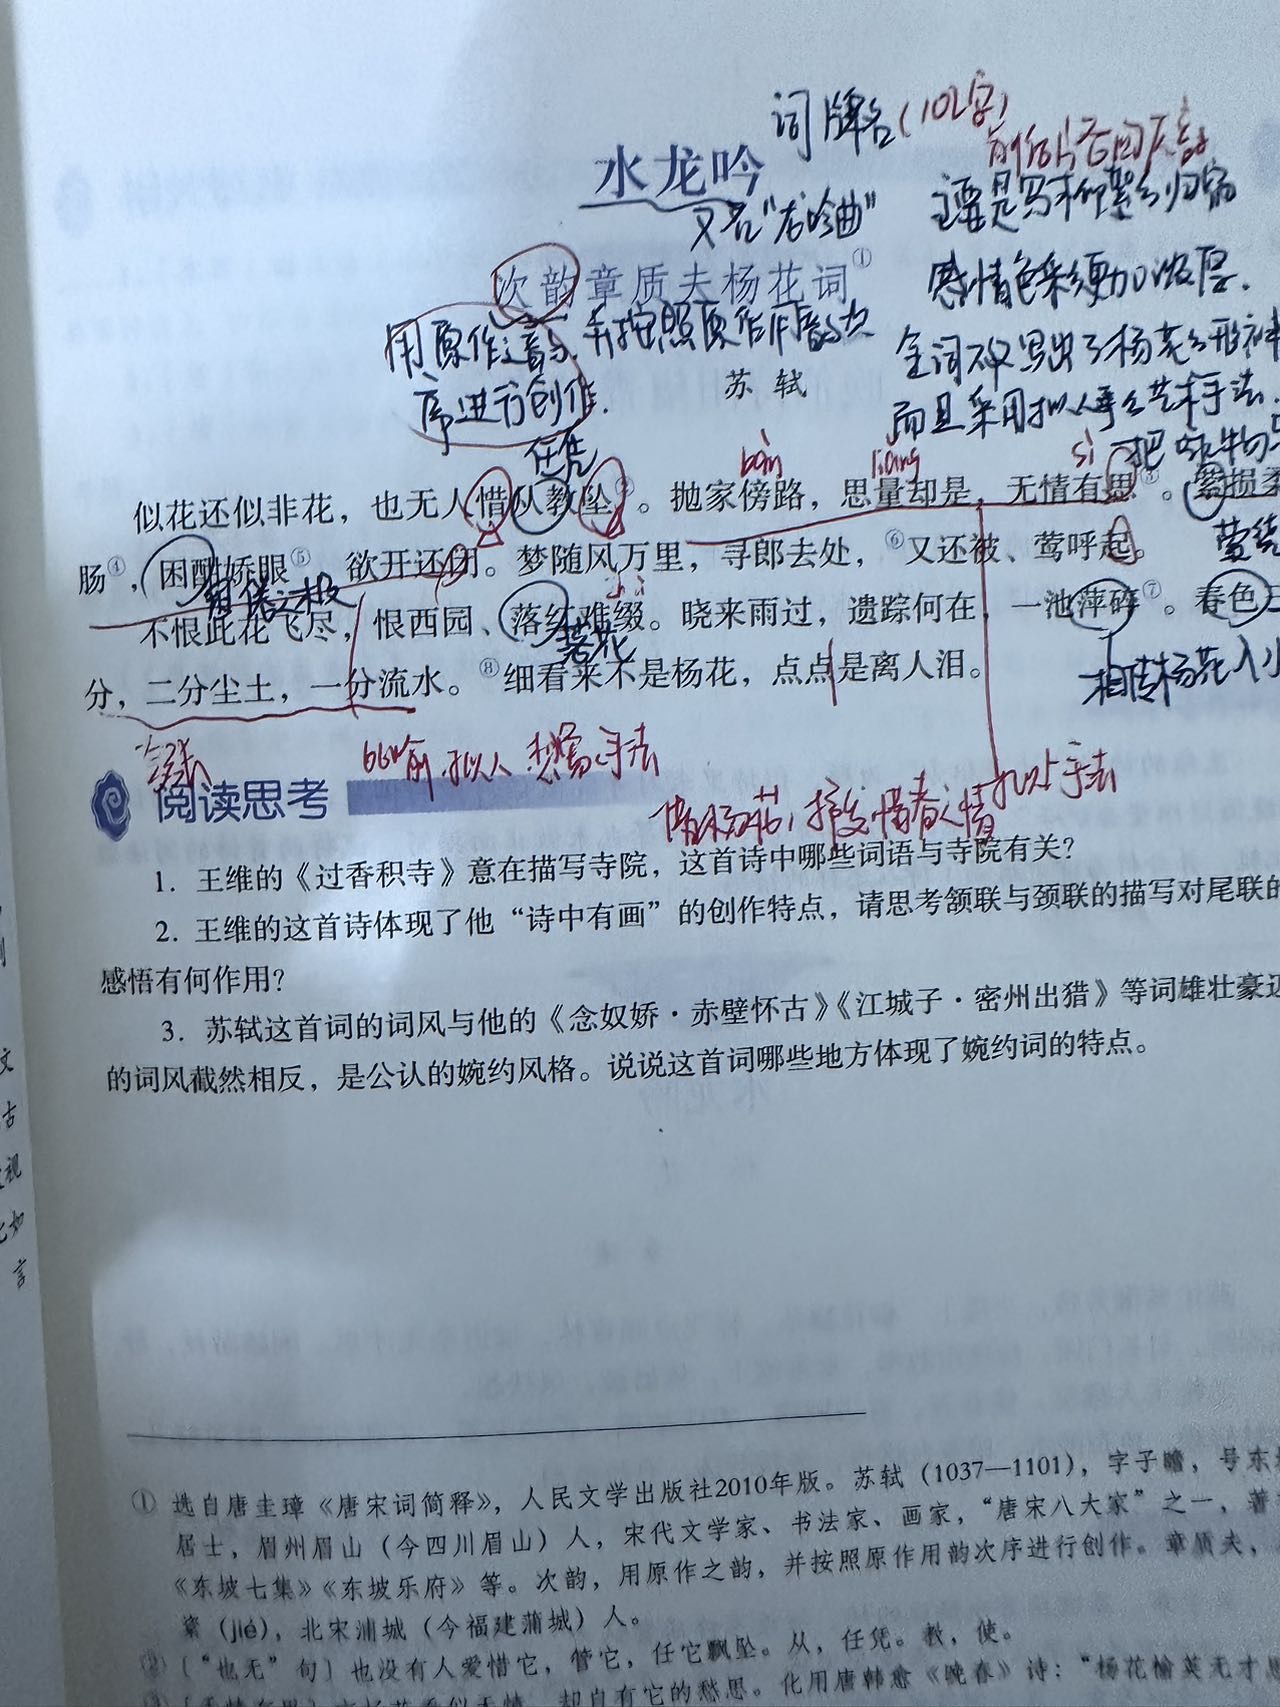 词牌名(102字)
水龙吟
前后片各四仄韵
又名"龙吟曲"
主要是写柳絮之归宿
次韵章质夫杨花词①
感情色彩更加浓厚.
用原作之韵、并按照原作用韵次
序进行创作.
全词不仅写出了杨花之形神
苏 轼
而且采用拟人等艺术手法.
任凭
bàn
liang
sì
把咏物与
似花还似非花，也无人惜从教坠②。抛家傍路，思量却是，无情有思③。萦损柔
萦绕
肠④，困酣娇眼⑤，欲开还闭。梦随风万里，寻郎去处，⑥又还被、莺呼起。
困倦之极
不恨此花飞尽，恨西园、落红难缀。晓来雨过，遗踪何在，一池萍碎⑦。春色三
落花
分，二分尘土，一分流水。⑧细看来不是杨花，点点是离人泪。
相传杨花入水
比喻 拟人 想象手法
拟人手法
借杨花，抒发惜春之情
阅读思考
1. 王维的《过香积寺》意在描写寺院，这首诗中哪些词语与寺院有关？
2. 王维的这首诗体现了他“诗中有画”的创作特点，请思考颔联与颈联的描写对尾联的
感悟有何作用？
3. 苏轼这首词的词风与他的《念奴娇·赤壁怀古》《江城子·密州出猎》等词雄壮豪迈
的词风截然相反，是公认的婉约风格。说说这首词哪些地方体现了婉约词的特点。
文
古
视
如
言
① 选自唐圭璋《唐宋词简释》，人民文学出版社2010年版。苏轼（1037—1101），字子瞻，号东坡
居士，眉州眉山（今四川眉山）人，宋代文学家、书法家、画家，“唐宋八大家”之一，著
《东坡七集》《东坡乐府》等。次韵，用原作之韵，并按照原作用韵次序进行创作。章质夫，
楶（jié），北宋浦城（今福建蒲城）人。
②〔“也无”句〕也没有人爱惜它，管它，任它飘坠。从，任凭。教，使。
却自有它的愁思。化用唐韩愈《晚春》诗：“杨花榆荚无才思